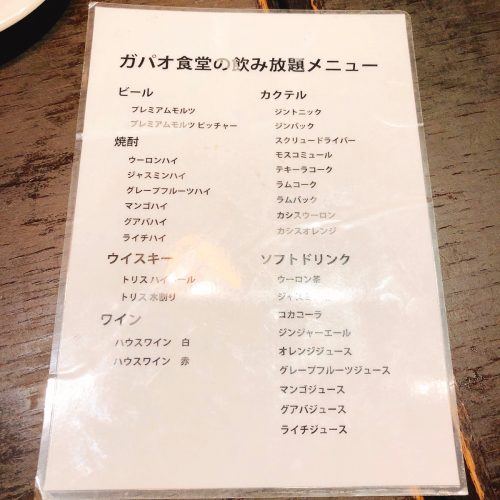 ガパオ食堂の飲み放題メニュー
ビール
プレミアムモルツ
プレミアムモルツ ピッチャー
焼酎
ウーロンハイ
ジャスミンハイ
グレープフルーツハイ
マンゴハイ
グアバハイ
ライチハイ
ウイスキー
トリス ハイボール
トリス 水割り
ワイン
ハウスワイン 白
ハウスワイン 赤
カクテル
ジントニック
ジンバック
スクリュードライバー
モスコミュール
テキーラコーク
ラムコーク
ラムバック
カシスウーロン
カシスオレンジ
ソフトドリンク
ウーロン茶
コカコーラ
ジンジャーエール
オレンジジュース
グレープフルーツジュース
マンゴジュース
グアバジュース
ライチジュース